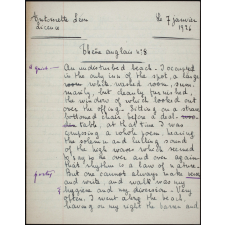 Antoinette
Licence
le 7 janvier
1926
Thème anglais n°8
An undisturbed beach. I occupied
in the only inn of the spot, a large
white washed room,
but cleanly furnished,
the window of which looked out
over the offing. Sitting on a straw
bottomed chair before a
table, at that time I was
composing a whole poem, leaving
the solemn and lulling sound
of the high waves which seemed
to say to me over and over again
that rhythm is a law of nature.
But one cannot always make verse
and write, and walk was my
hygiene and my diversion. Very
often, I went along the beach,
having on my right the